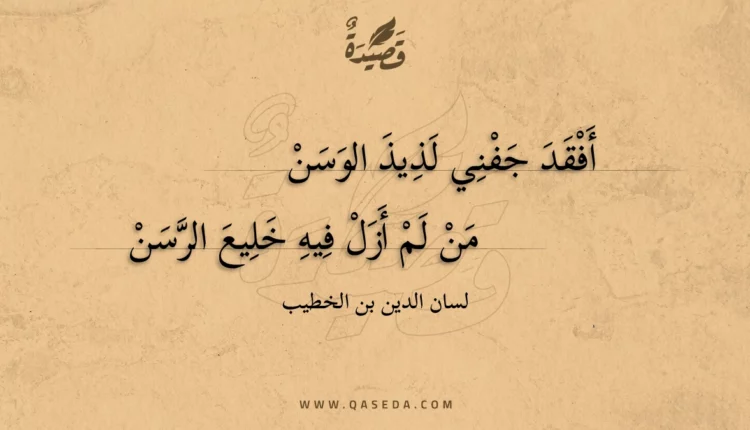 قَصِيْدَةٌ
أَفْقَدَ جَفْنِي لَذِيذَ الوَسَنْ
مَنْ لَمْ أَزَلْ فِيهِ خَلِيعَ الرَّسَنْ
لسان الدين بن الخطيب
WWW.QASEDA.COM